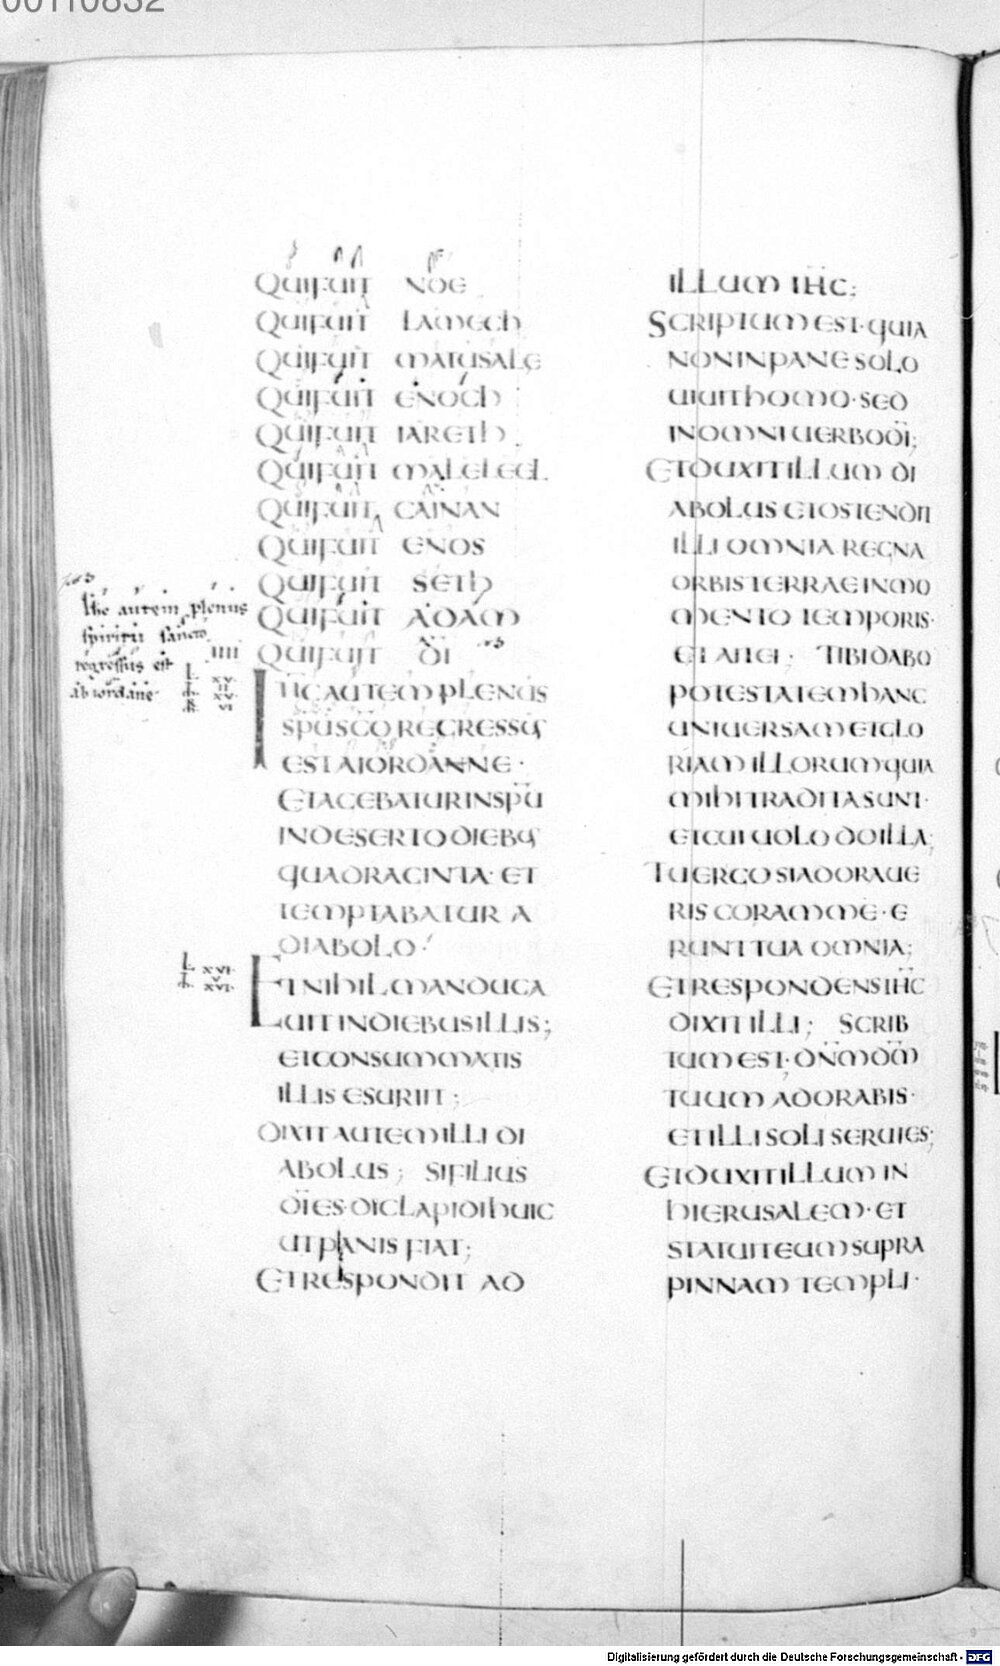 00110832
QUIFUIT NOE
QUIFUIT LAMECH
QUIFUIT MATUSALE
QUIFUIT ENOCH
QUIFUIT IARETH
QUIFUIT MALELEEL
QUIFUIT CAINAN
QUIFUIT ENOS
QUIFUIT SETH
QUIFUIT ADAM
QUIFUIT D̄I
Ihc autem plenus
spiritu sancto
regressus est
ab iordane
IIII
L XV
II
XV
VI
IHC AUTEM PLENUS
SP̄USSC̄O REGRESSUS
EST AIORDANNE·
ETAGEBATURINSP̄U
INDESERTODIEBUS
QUADRAGINTA· ET
TEMPTABATUR A
DIABOLO·
L XVI
V
XVI
ETNIHILMANDUCA
UITINDIEBUSILLIS;
ETCONSUMMATIS
ILLIS ESURIIT;
DIXIT AUTEMILLI DI
ABOLUS; SIFILIUS
D̄IES·DICLAPIDIHUIC
UTPANIS FIAT;
ETRESPONDIT AD
ILLUM IH̄C;
SCRIPTUMEST·QUIA
NONINPANESOLO
UIUITHOMO·SED
INOMNIUERBOD̄I;
ETDUXITILLUM DI
ABOLUS ETOSTENDIT
ILLI OMNIA REGNA
ORBISTERRAEINMO
MENTO TEMPORIS·
ET AIT EI· TIBIDABO
POTESTATEMHANC
UNIUERSAMETGLO
RIAMILLORUMQUIA
MIHITRADITASUNT·
ETCUIUOLODOILLA;
TUERGOSIADORAUE
RIS CORAMME·E
RUNTTUA OMNIA;
ETRESPONDENSIH̄C
DIXITILLI; SCRIB
TUMEST·DN̄MDM̄
TUUM ADORABIS·
ETILLISOLISERUIES;
ETDUXITILLUMIN
HIERUSALEM·ET
STATUITEUMSUPRA
PINNAM TEMPLI·
Digitalisierung gefördert durch die Deutsche Forschungsgemeinschaft - DFG